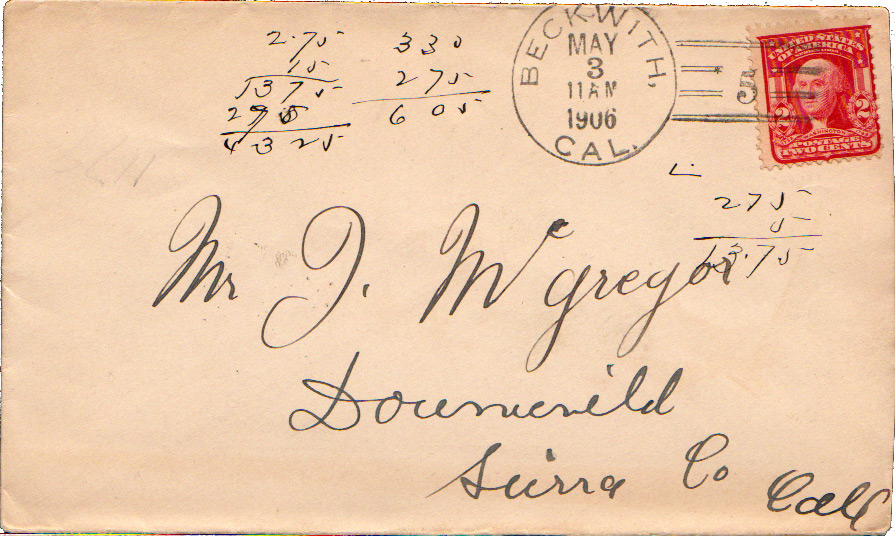 2.75
15
1375
275
4325
330
275
605
BECKWITH,
MAY
3
11 AM
1906
CAL.
UNITED STATES
OF AMERICA
2 2
WASHINGTON
POSTAGE
TWO CENTS
275
5
13.75
Mr J. McGregor
Downievild
Sierra Co
Calf